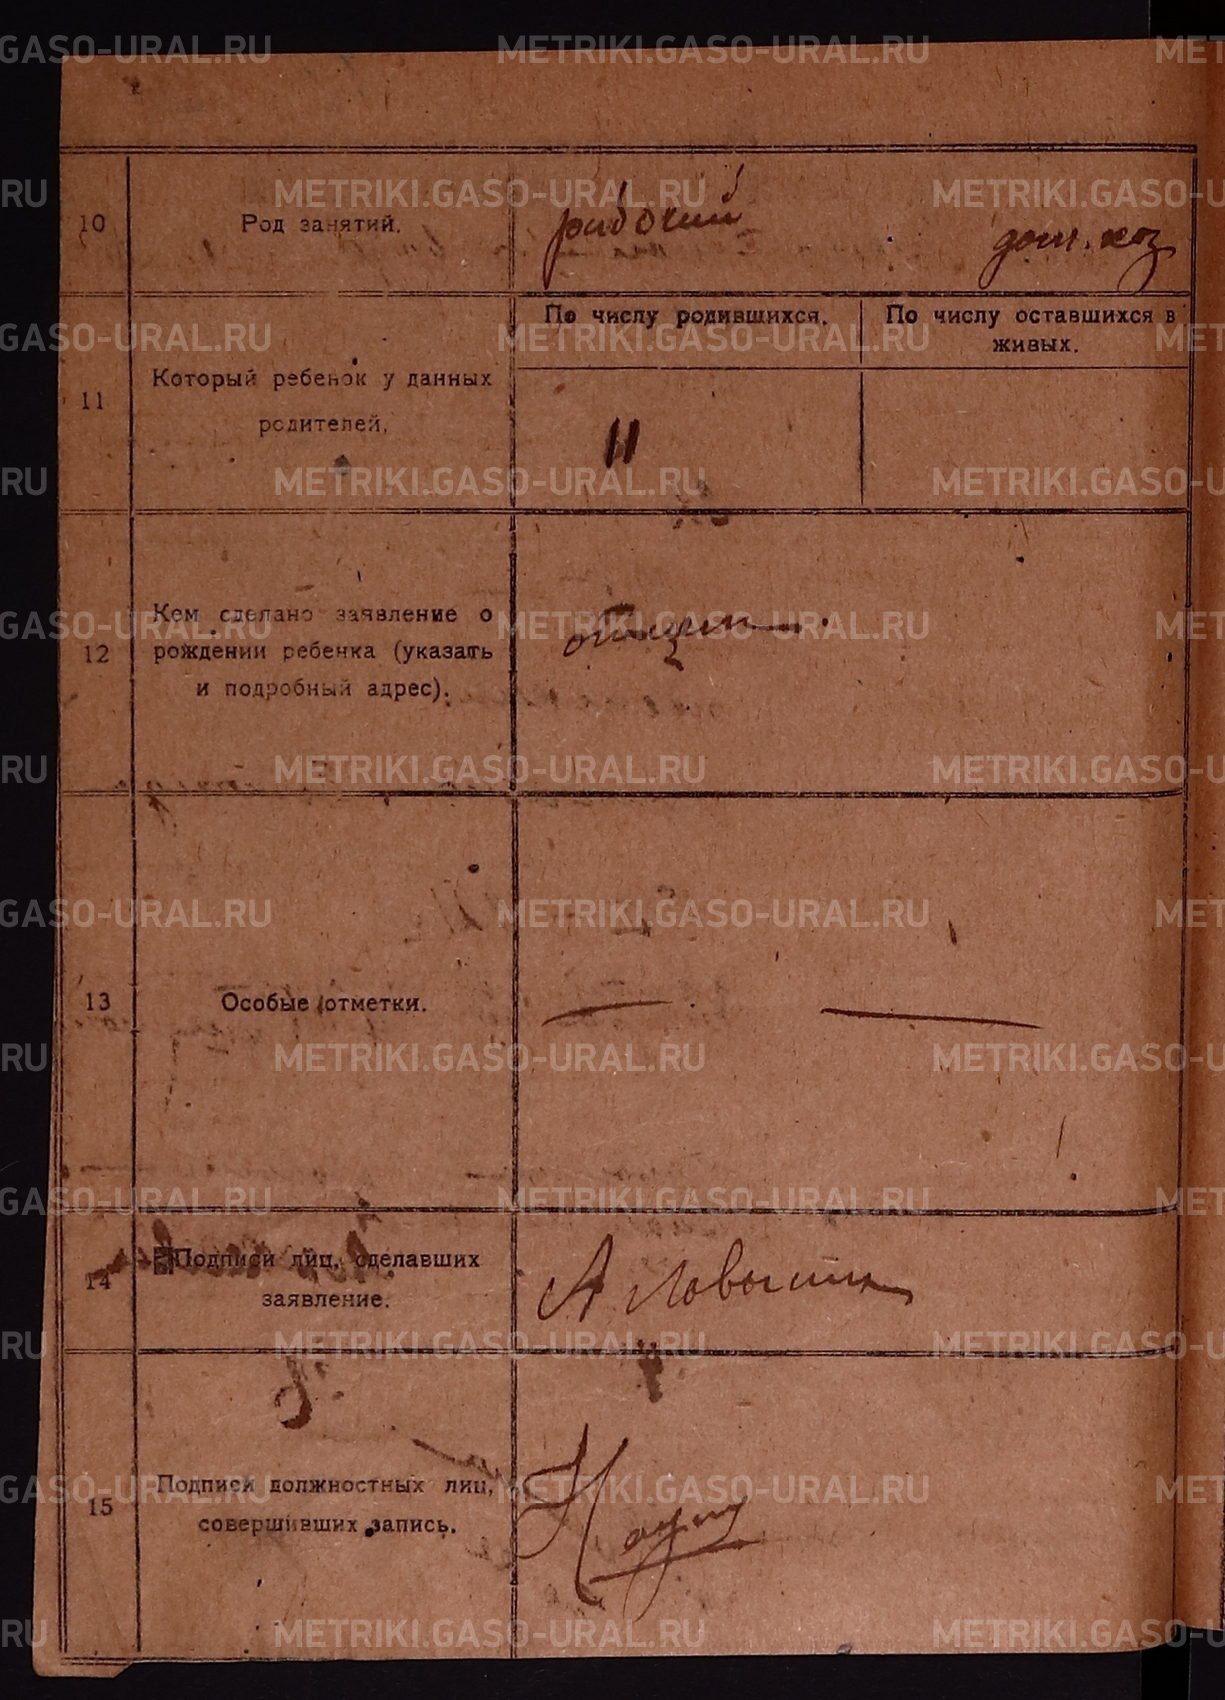 10 Род занятий. рабочий дом. хоз
По числу родившихся. По числу оставшихся в
живых.
11 Который ребенок у данных
родителей.
11
Кем сделано заявление о
12 рождении ребенка (указать
и подробный адрес).
отцом
13 Особые отметки. — —
14 Подписи лиц, сделавших
заявление.
А
15 Подписи должностных лиц,
совершивших запись.
METRIKI.GASO-URAL.RU